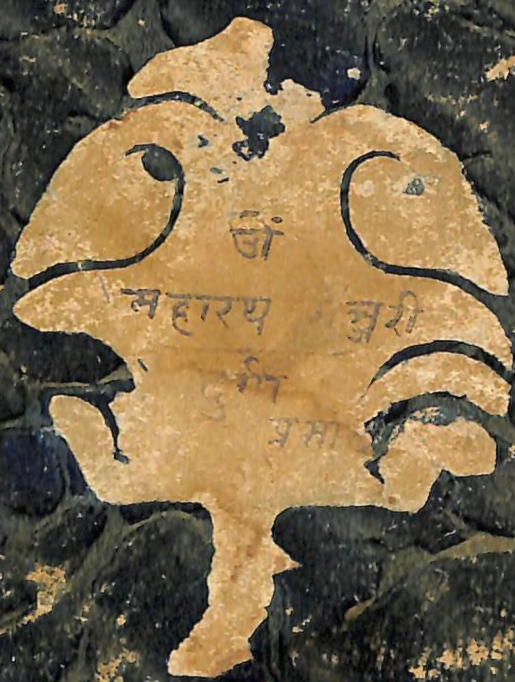 ॐ
महारथ ञ्जरी
दुर्गा
प्रसाद